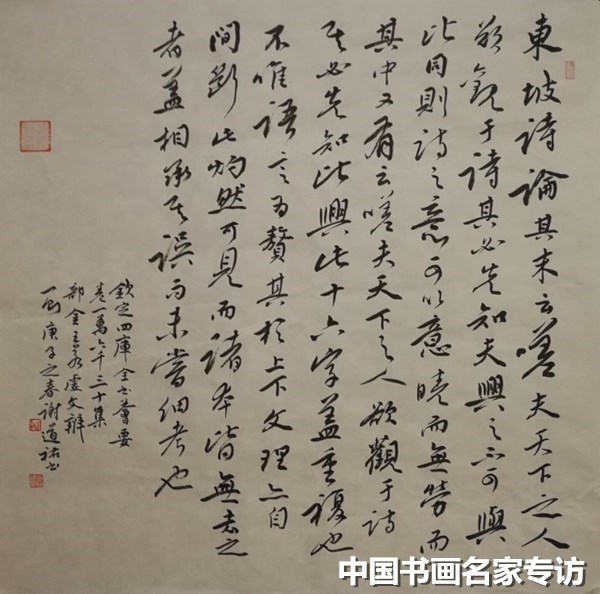 東坡詩論其末云嗟夫天下之人
欲觀于詩其必先知夫興之不可與
比同則詩之意可以意曉而無勞而
其中又有云嗟夫天下之人欲觀于詩
其必先知比興此十六字蓋重複也
不唯語言為贅其於上下文理亦自
間斷此灼然可見而諸本皆無去之
者蓋相承其誤而未嘗細考也
欽定四庫全书薈要
卷一萬六千三十集
部金王若虛文辨
一則庚子之春謝道书
中国书画名家专访